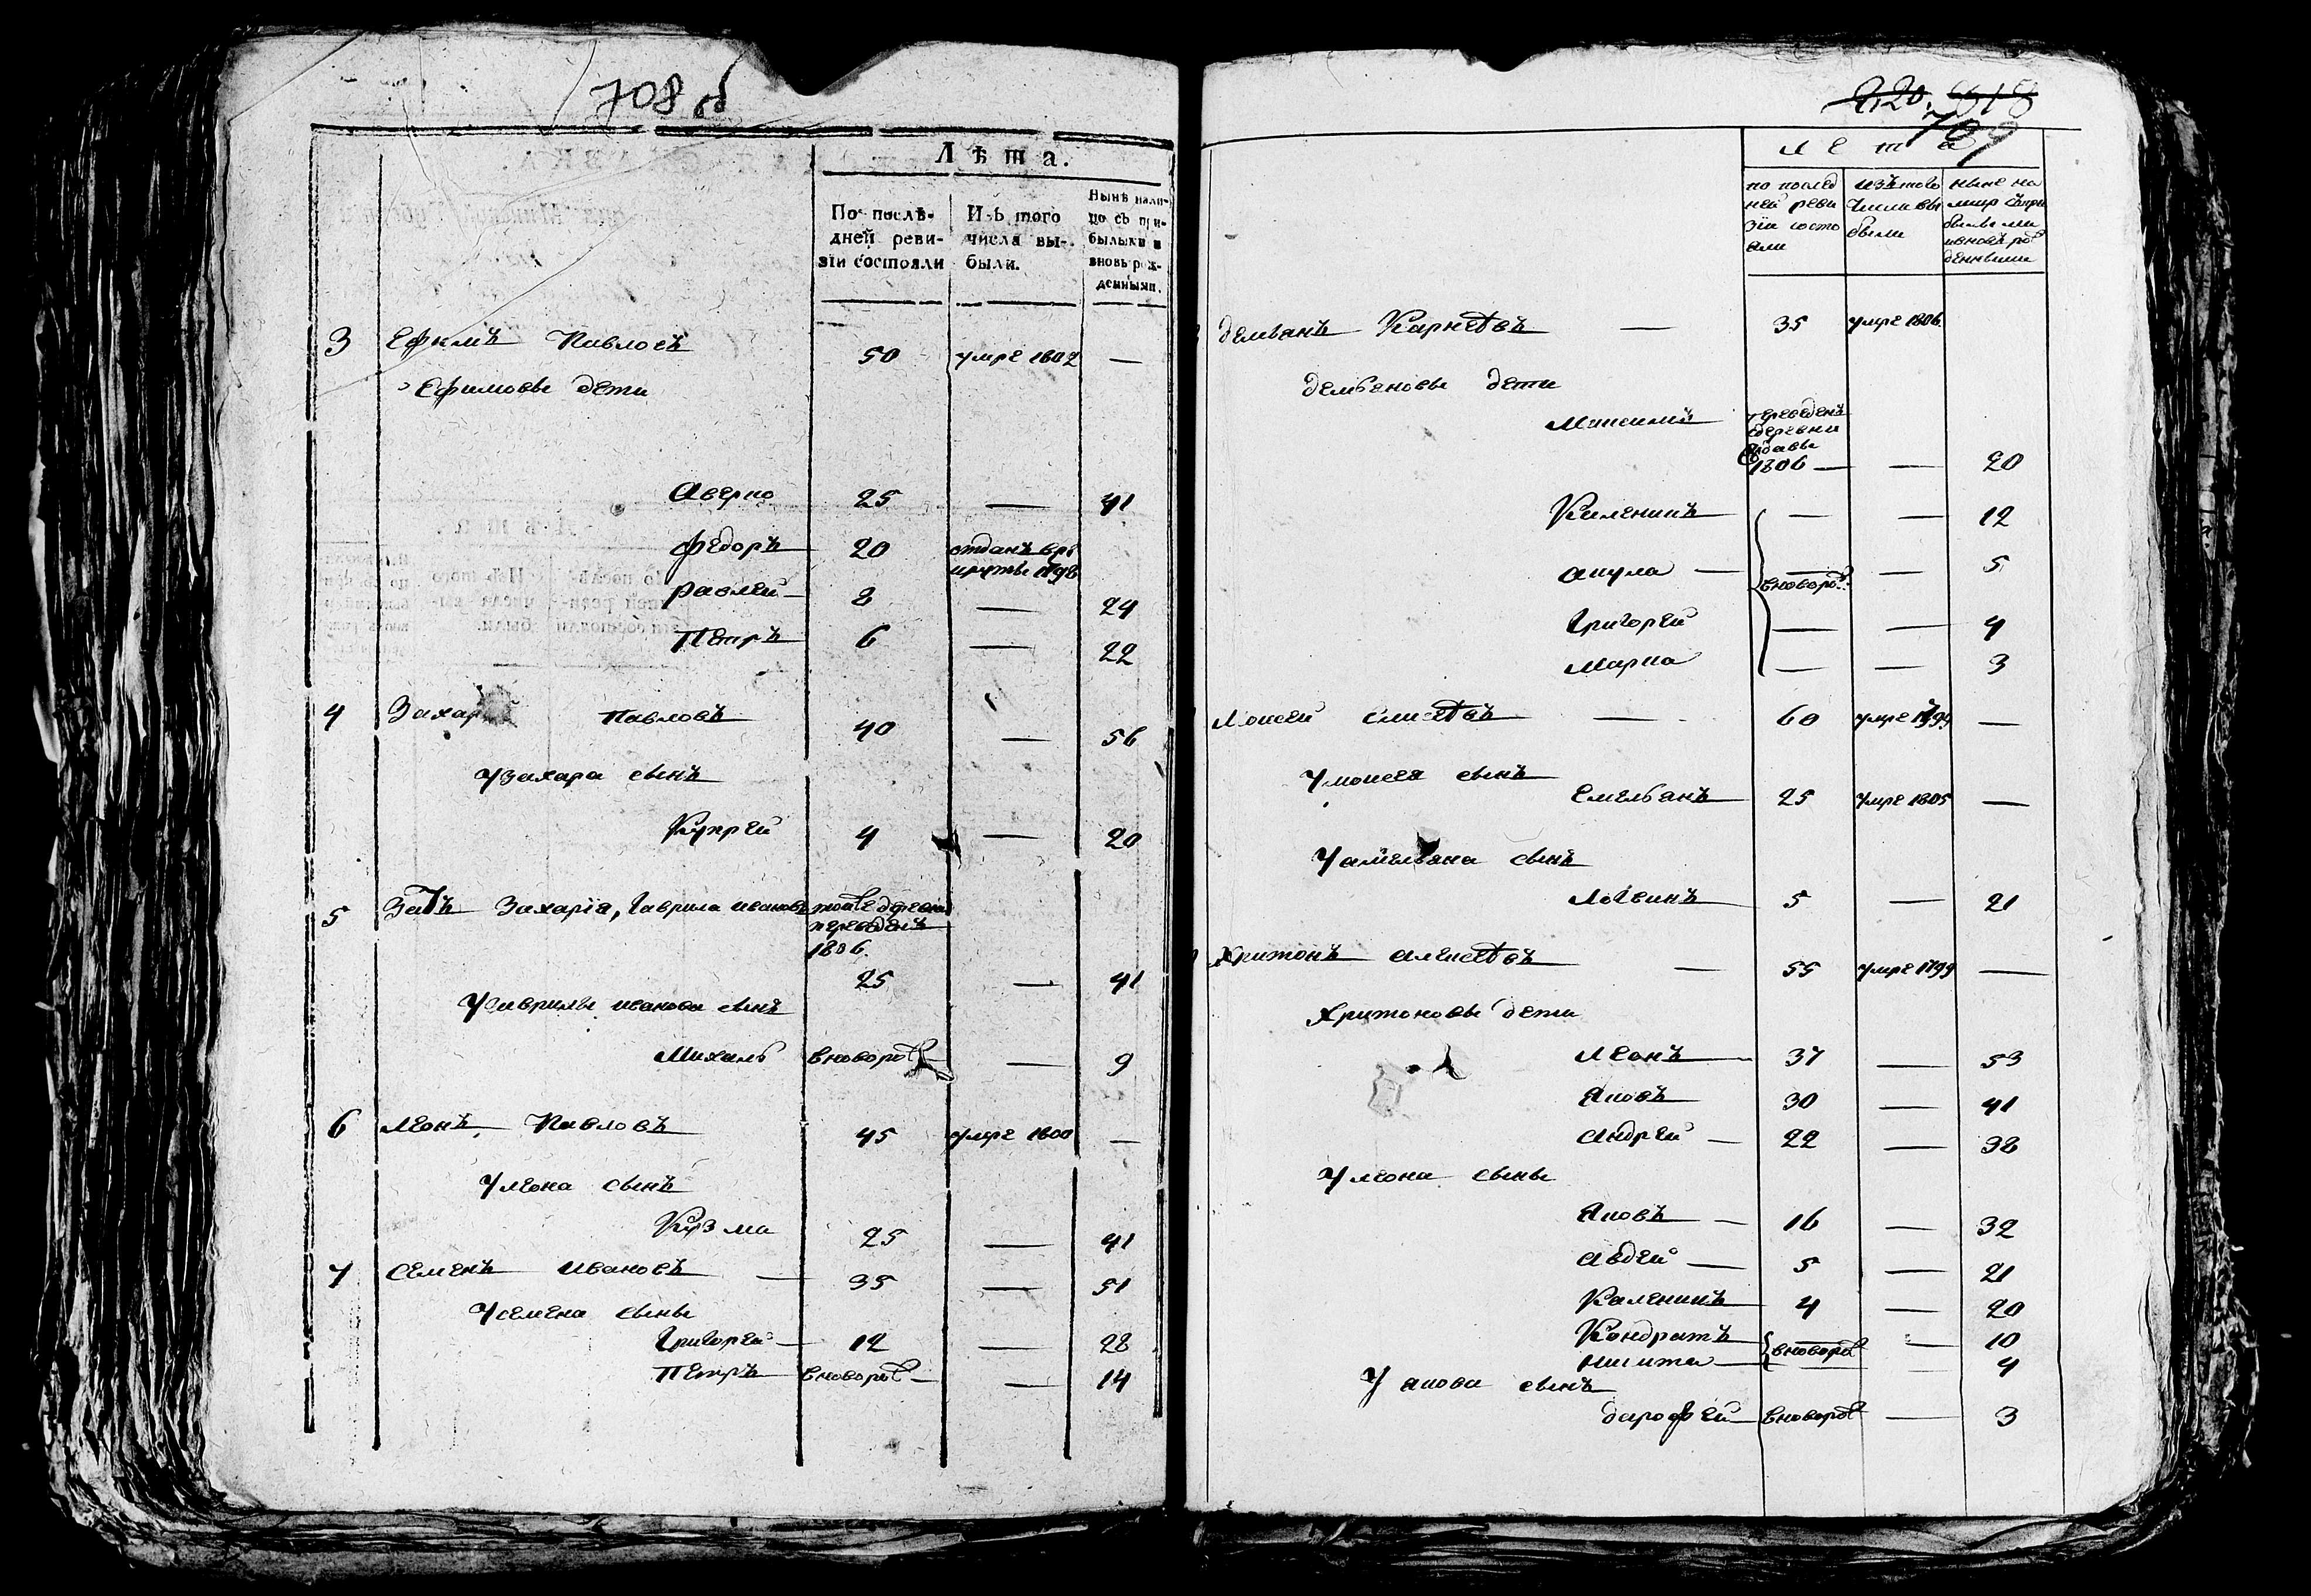 708 б
Лѣта.
По послѣдней ревизіи состояли
Изъ того числа выбыли.
Нынѣ налицо съ прибылыми и вновь рожденными.
3 Ефимъ Павловъ 50 умре 1802 —
Ефимовы дети
Аверко 25 — 41
Федоръ 20 отданъ врекруты 1798
Павлей 8 — 24
Петръ 6 — 22
4 Захар Павловъ 40 — 56
У захара сынъ
Купрей 4 — 20
5 Зать Захарія, Гаврила Ивановъ тойже деревни
переведенъ
1806.
25 — 41
У Гаврилы иванова сынъ
Михаль вноворо — 9
6 Леонъ Павловъ 45 умре 1800 —
У леона сынъ
Кузма 25 — 41
7 Семенъ Ивановъ — 35 — 51
У семена сыны
Григорей — 12 — 28
Петръ вноворо — — 14
220. 5518
709
Лета
по последней ревизіи состояли
изътого числа выбыли
ныне на лицо
демьянъ Карнеевъ — 35 умре 1806.
демьяновы дети
Максимъ переведенъ
здеревни
1806 — — 20
Каленикъ — — 12
акула — вноворо — 5
Григорей — — 4
Марка — — 3
Моисей елисеевъ — 60 умре 1799 —
У моисея сынъ
Емельянъ 25 умре 1805 —
У амельяна сынъ
Логвинъ 5 — 21
Харитонъ алексеевъ — 55 умре 1799 —
Харитоновы дети
Леонъ 37 — 53
Яковъ 30 — 41
андрей — 22 — 38
У леона сыны
Яковъ — 16 — 32
авдей — 5 — 21
Каленикъ 4 — 20
Кондратъ вноворо — 10
никита — — 4
У якова сынъ
дарофей вноворо — 3